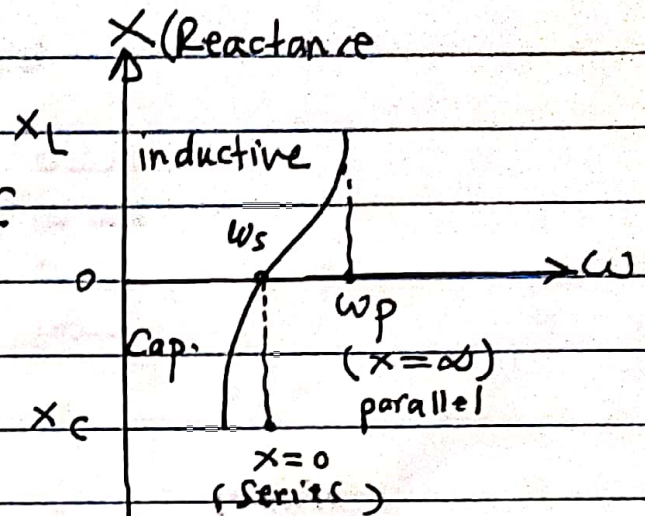 X (Reactance
XL
inductive
ws
0
ω
wp
Cap.
(x=∞)
parallel
Xc
x=0
(series)